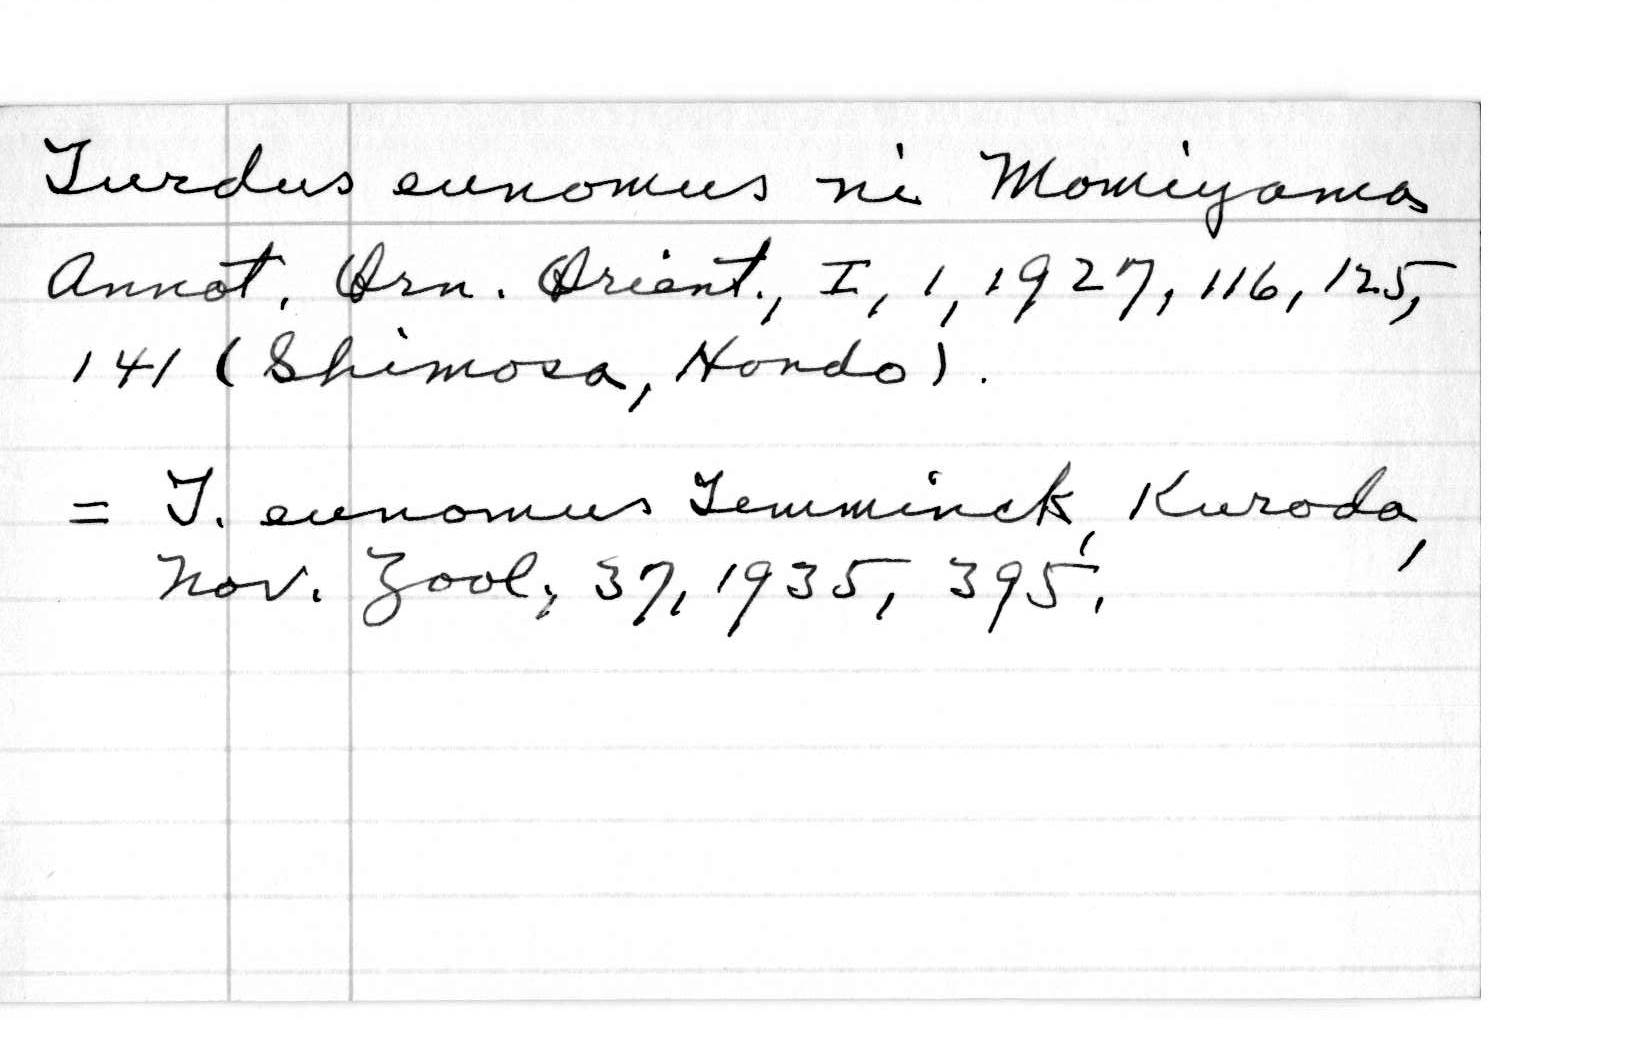 Turdus eunomus ni Momiyama
Annot. Orn. Orient., I, 1, 1927, 116, 125,
141 (Shimosa, Hondo).
= T. eunomus Temminck, Kuroda,
Nov. Zool., 37, 1935, 395.